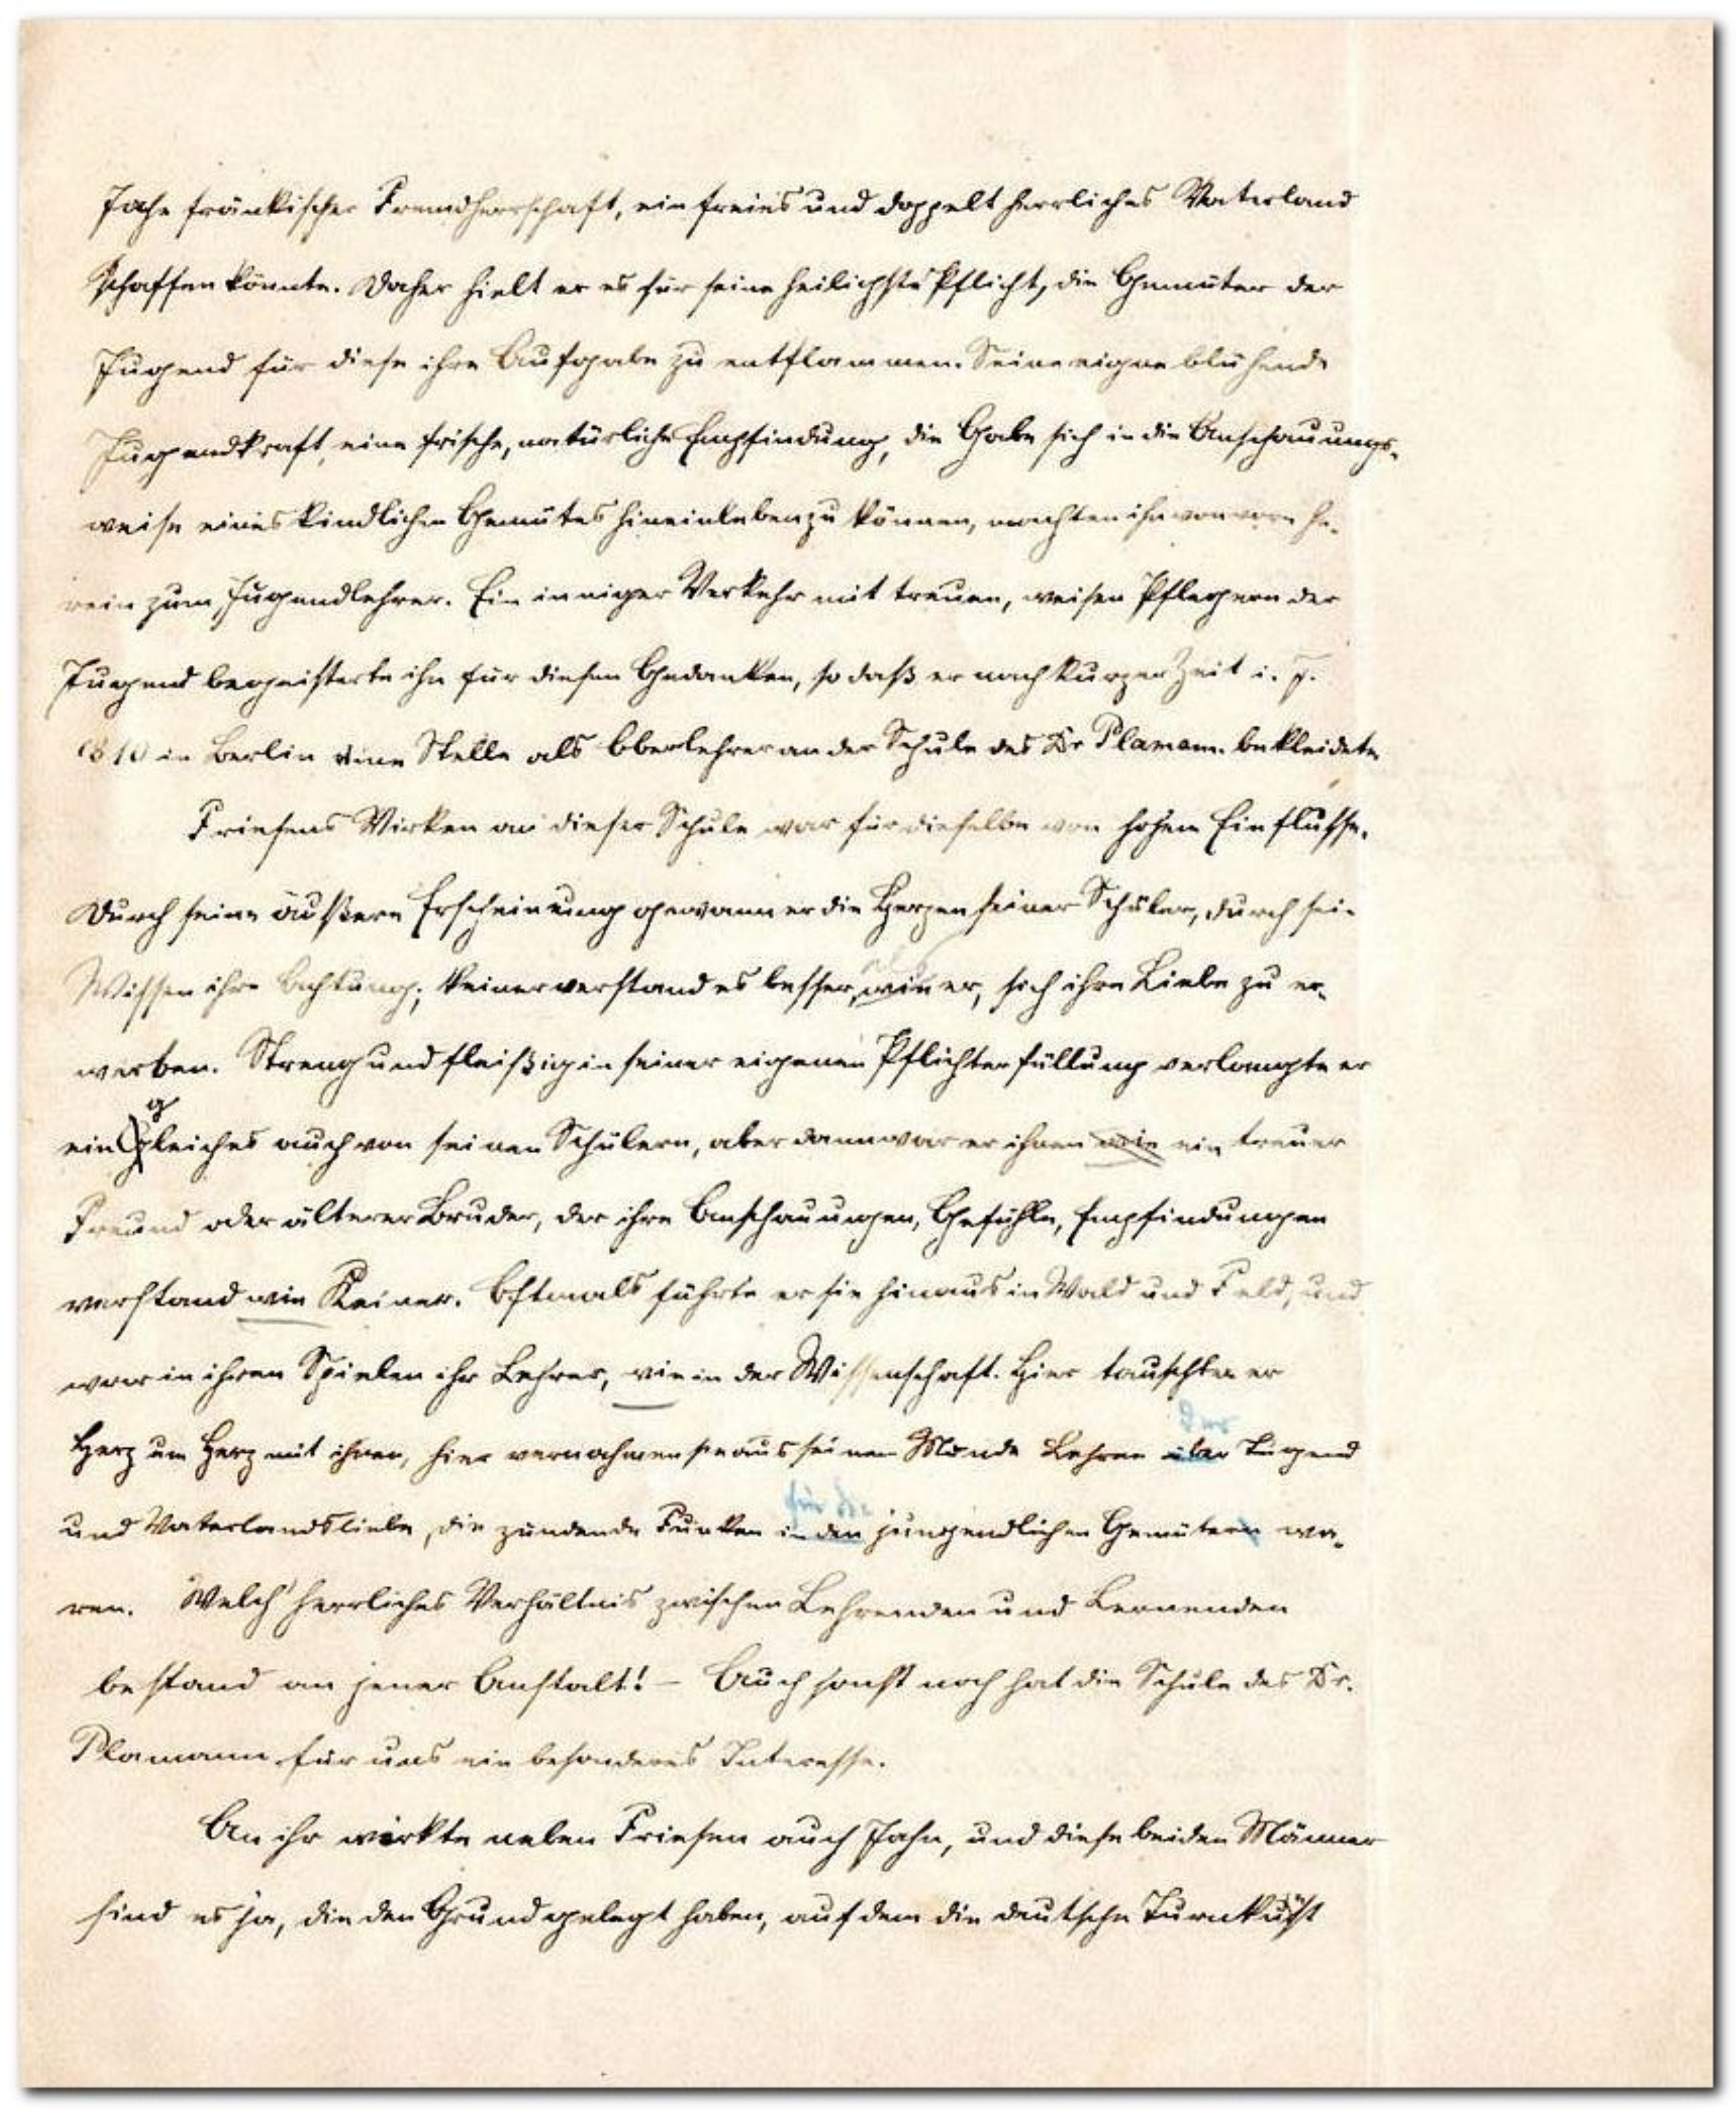 Joche fränkischer Fremdherrschaft, ein freies und doppelt herrliches Vaterland
schaffen könnte. Daher hielt er es für seine heiligste Pflicht, die Gemüter der
Jugend für diese ihre Aufgabe zu entflammen. Seine eigne blühende
Jugendkraft, eine frische, natürliche Empfindung, die Gabe sich in die Anschauungs-
weise eines kindlichen Gemütes hineinleben zu können, machten ihn von vorn he-
rein zum Jugendlehrer. Ein inniger Verkehr mit treuen, weisen Pflegern der
Jugend begeisterte ihn für diesen Gedanken, so daß er nach kurzer Zeit i. J.
1810 in Berlin eine Stelle als Oberlehrer an der Schule des Dr Plamann bekleidete.
Friesens Wirken an dieser Schule war für dieselbe von hohem Einflusse.
Durch seine äußere Erscheinung gewann er die Herzen seiner Schüler, durch sein
Wissen ihre Achtung; keiner verstand es besser, wie er, sich ihre Liebe zu er-
werben. Streng und fleißig in seiner eigenen Pflichterfüllung verlangte er
ein gleiches auch von seinen Schülern, aber dann war er ihnen wie ein treuer
Freund oder älterer Bruder, der ihre Anschauungen, Gefühle, Empfindungen
verstand wie Keiner. Oftmals führte er sie hinaus in Wald und Feld, und
war in ihren Spielen ihr Lehrer, wie in der Wissenschaft. Hier tauschte er
der
Herz um Herz mit ihnen, hier vernahmen sie aus seinem Munde Lehren über Tugend
für die
und Vaterlandsliebe, die zündende Funken in den jungendlichen Gemütern wa-
ren. Welch' herrliches Verhältnis zwischen Lehrenden und Lernenden
bestand an jener Anstalt! – Auch sonst noch hat die Schule des Dr.
Plamann für uns ein besonderes Interesse.
An ihr wirkte neben Friesen auch Jahn, und diese beiden Männer
sind es ja, die den Grund gelegt haben, auf dem die deutsche Turnkunst